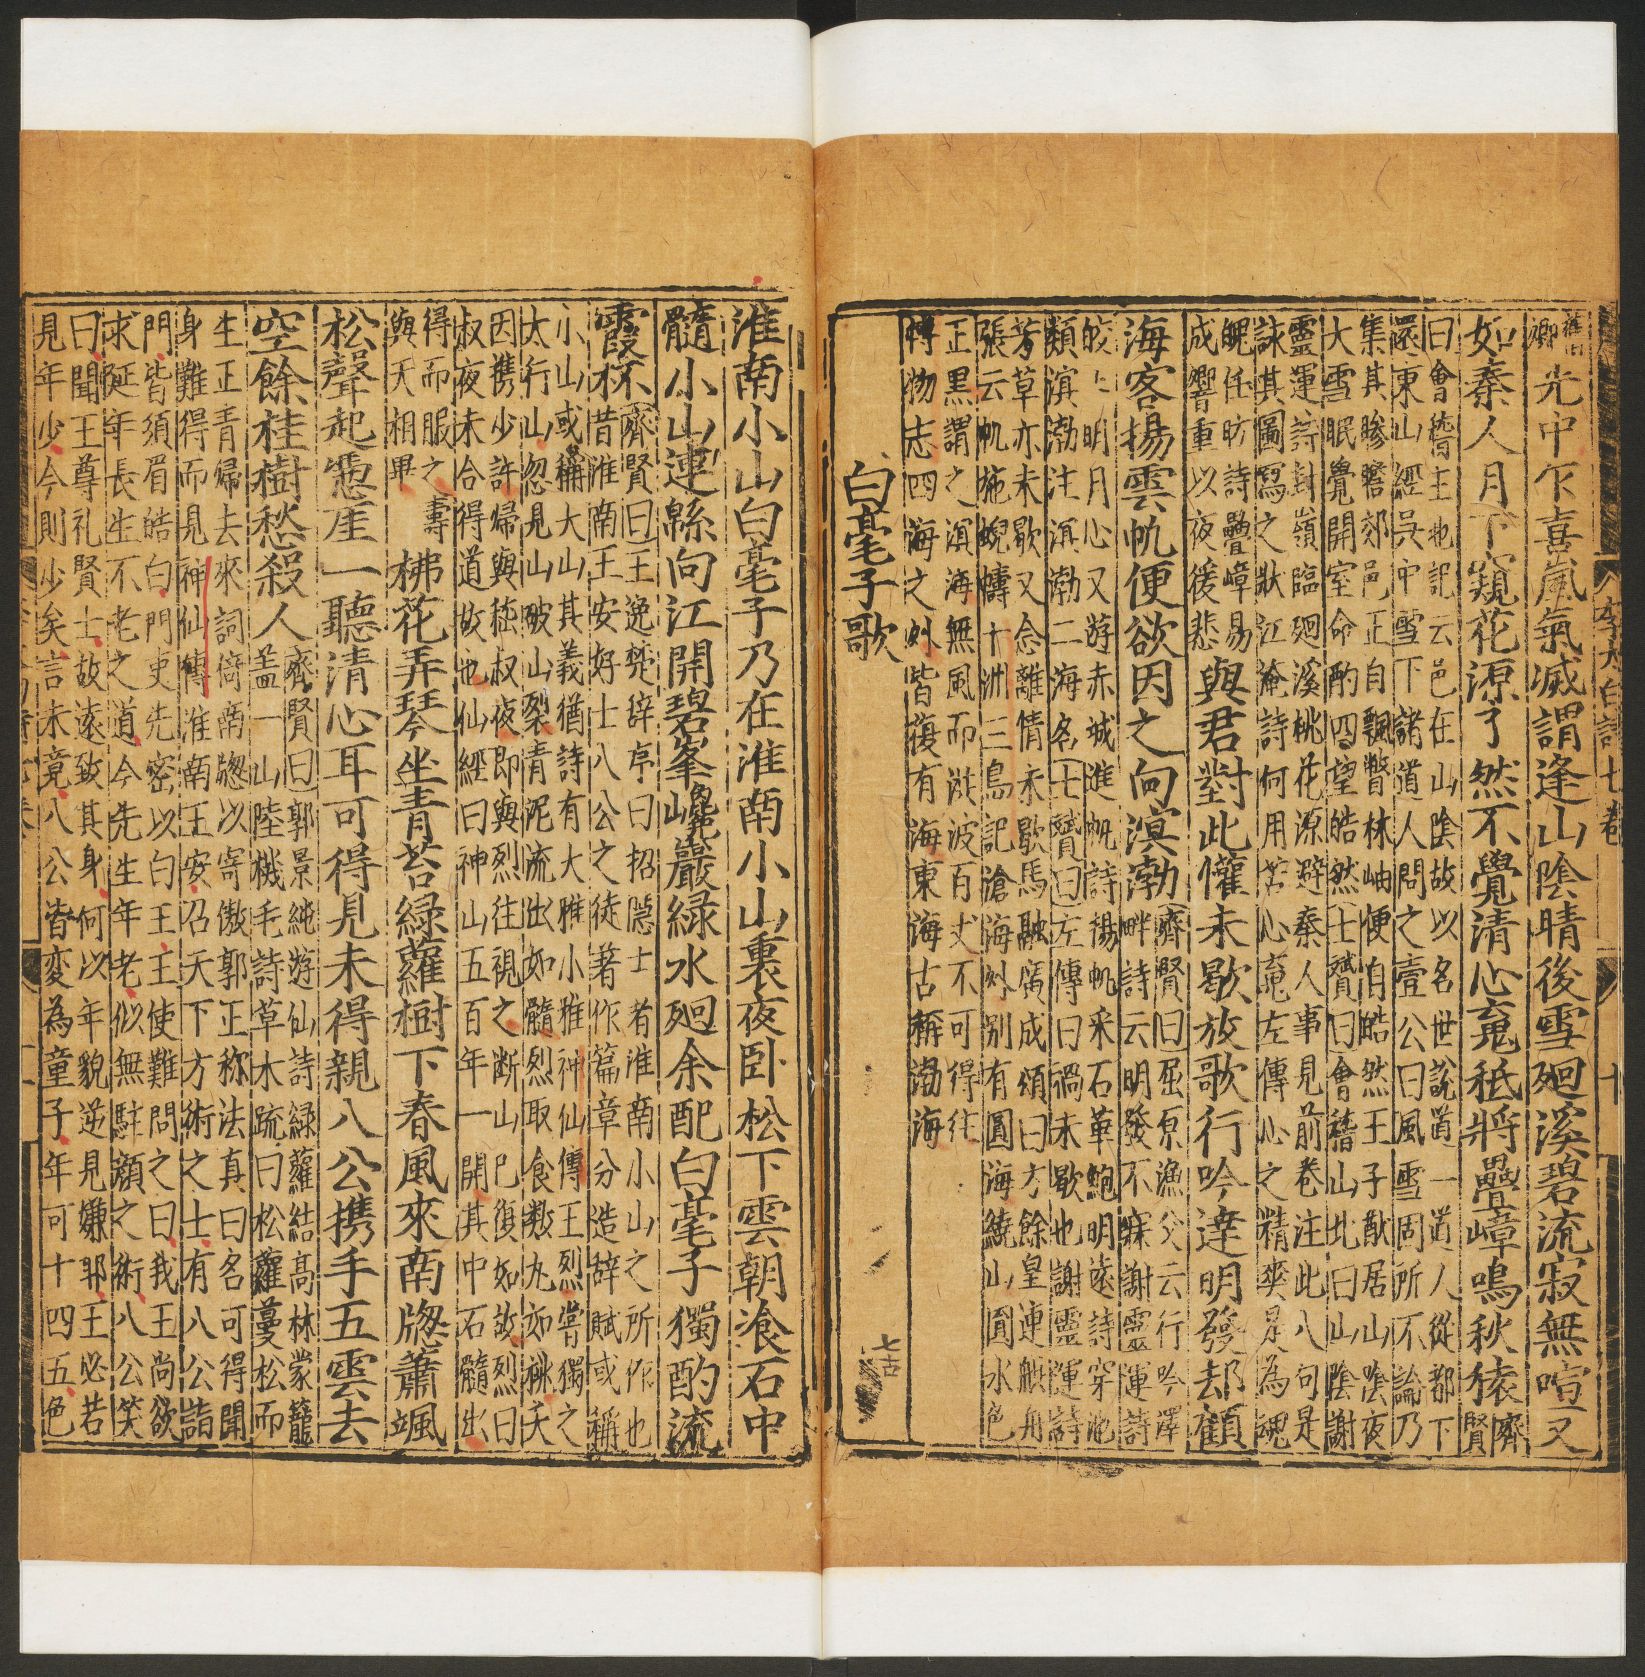 光中乍喜嵐氣滅謂逢山陰晴後雪廻溪碧流寂無喧又
如秦人月下窺花源了然不覺清心䰟秪將疊嶂鳴秋猿齊賢
曰會稽土地記云邑在山陰故以名世説道一道人從都下
還東山經吳中雪下諸道人問之壹公曰風雪固所不論乃
集其㬱澹郊邑正自飄瞥林岫便自皓然王子猷居山陰夜
大雪眠覺開室命酌四望皓然士贇曰會稽山北曰山陰謝
靈運詩封嶺臨廻溪桃花源避秦人事見前卷注此八句是
詠其圖寫之狀江淹詩何用苦心䰟左傳心之精爽是為魂
魄任昉詩疊嶂易
成響重以夜猨悲
與君對此懽未歇放歌行吟達明發却顧
海客揚雲帆便欲因之向溟渤
齊賢曰屈原漁父云行吟澤
畔詩云明發不寐謝靈運詩
皎〻明月心又游赤城進帆詩揚帆采石華鮑明遠詩穿池
類溟渤注溟渤二海名士贇曰左傳曰禍未歇也謝靈運詩
芳草亦未歇又念離情未歇馬融廣成頌曰方餘皇連舼舟
張云帆施蜺幬十洲三島記滄海外别有圓海繞山圓水色
正黑謂之溟海無風而洪波百丈不可得往
博物志四海之外皆復有海東海古稱渤海
白毫子歌
七古
李太白詩七卷
十
淮南小山白毫子乃在淮南小山裏夜卧松下雲朝飡石中
髓小山連緜向江開碧峯巉巖緑水廻余配白毫子獨酌流
霞杯
齊賢曰王逸楚辞序曰招隠士者淮南小山之所作也
昔淮南王安好士八公之徒著作篇章分造辞賦或稱
小山或稱大山其義猶詩有大雅小雅神仙傳王烈嘗獨之
太行山忽見山破山裂青泥流出如髓烈取食数丸如桃天
因携少許歸與嵇叔夜即與烈往視之断山已復如故烈曰
叔夜未合得道故也仙經曰神山五百年一開其中石髓出
得而服之壽
與天相畢
拂花弄琴坐青苔緑蘿樹下春風來南牎蕭颯
松聲起慿崖一聽清心耳可得見未得親八公携手五雲去
空餘桂樹愁殺人
齊賢曰郭景純游仙詩緑蘿結髙林蒙籠
盖一山陸機毛詩草木疏曰松蘿蔓松而
生正青帰去來詞倚南牎以寄傲郭正称法真曰名可得聞
身難得而見神仙傳淮南王安召天下方術之士有八公詣
門皆須眉皓白門吏先密以白王王使難問之曰我王尚欲
求延年長生不老之道今先生年老似無駐顔之術八公笑
曰聞王尊礼賢士故遠致其身何以年貌逆見嫌耶王必若
見年少今則少矣言未竟八公皆变為童子年可十四五色